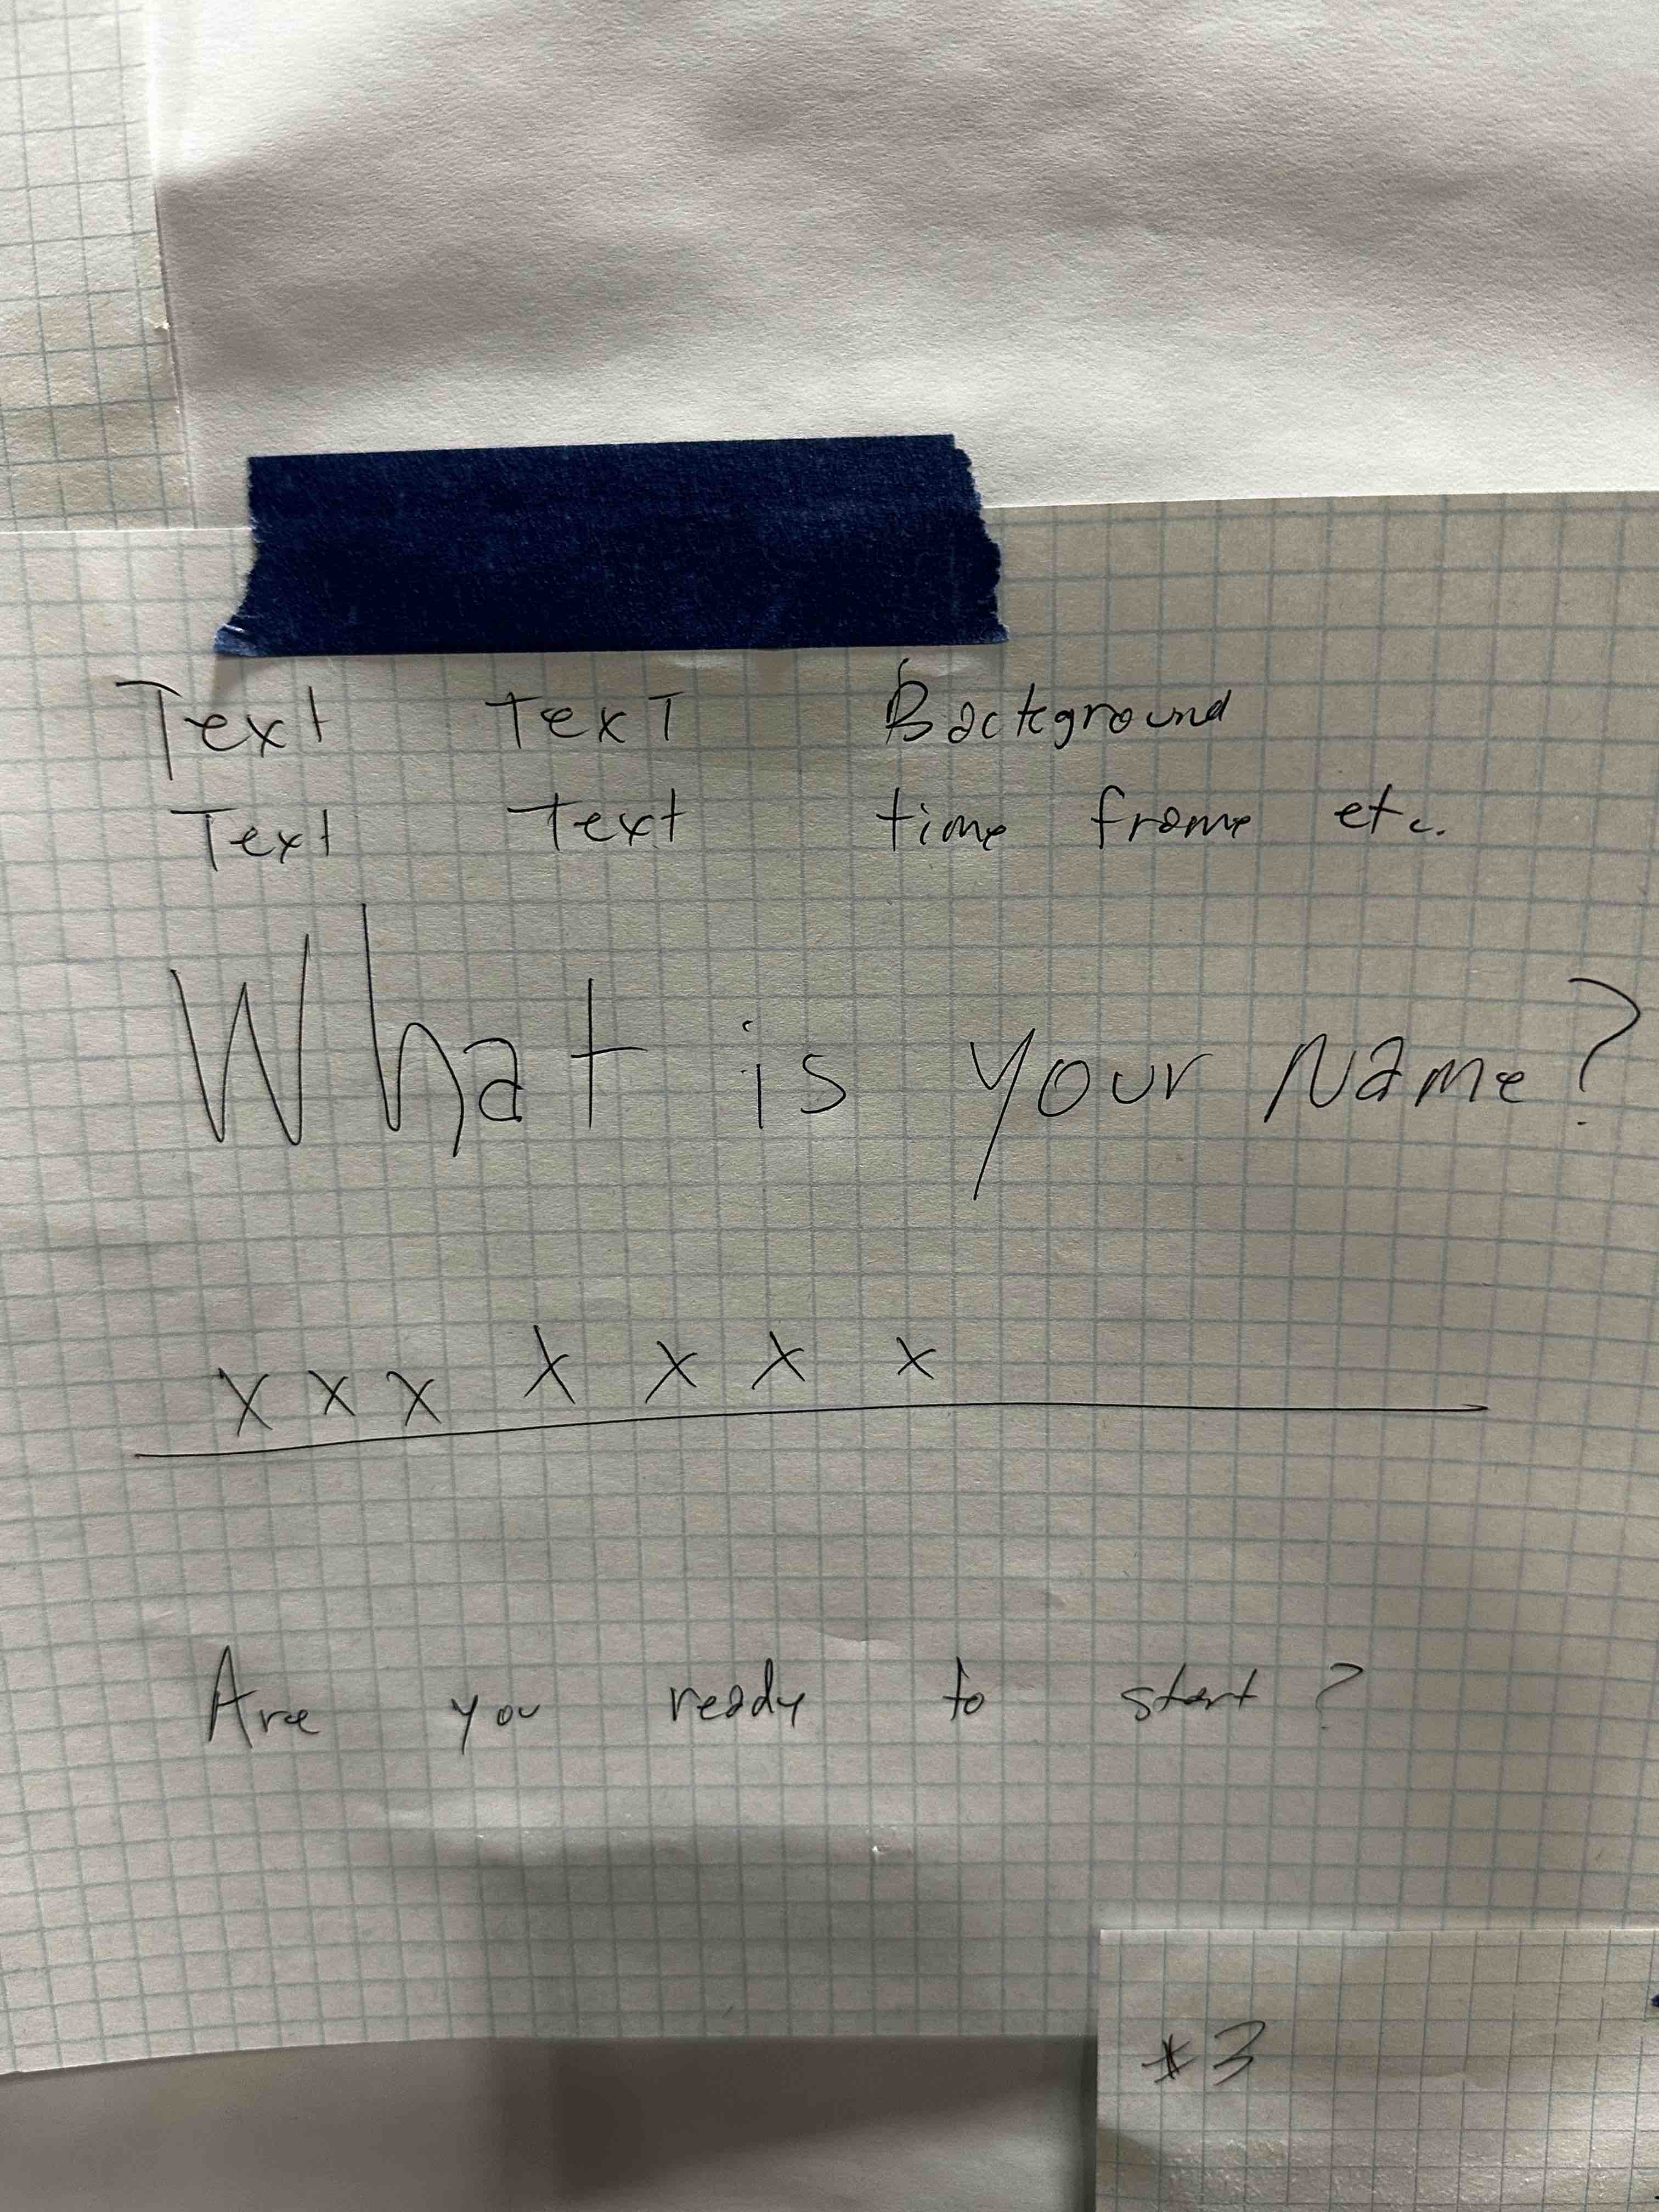 Text TexT Background
Text Text time frame etc.
What is your name?
x x x x x x x
Are you ready to start?
#3